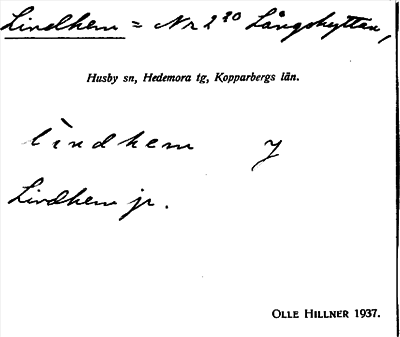 Lindhem = Nr 2²⁰ Långshyttan,
Husby sn, Hedemora tg, Kopparbergs län.
lìndhem y
Lindhem jr.
OLLE HILLNER 1937.